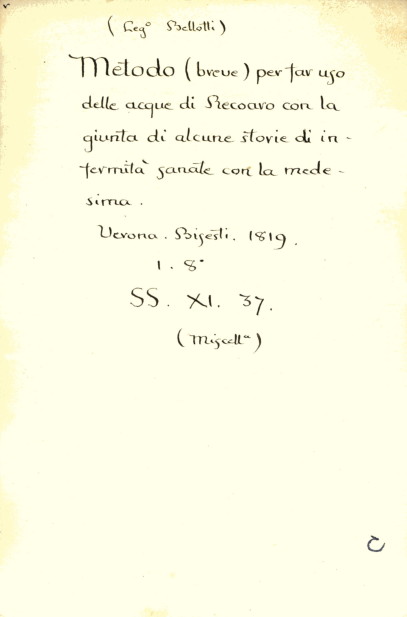 ( Leg° Bellotti )
Metodo ( breve ) per far uso
delle acque di Recoaro con la
giunta di alcune storie di in -
fermità sanate con la mede -
sima .
Verona . Bisesti . 1819 .
1 . 8°
SS . XI . 37 .
( Miscell.ª )